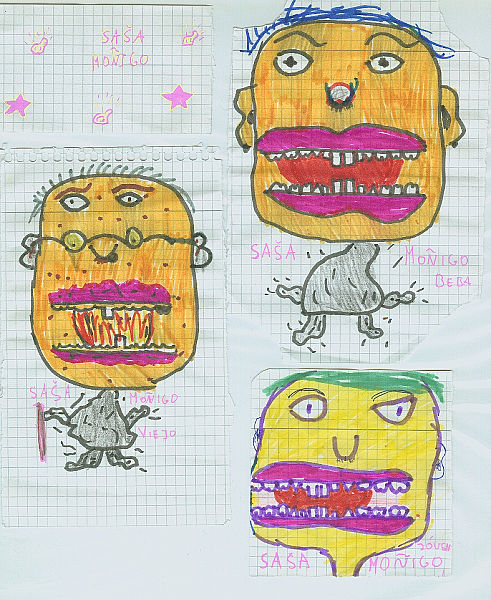 SAŠA
MOÑIGO
SAŠA MOÑIGO
BEBA
SAŠA MOÑIGO
VIEJO
JOVEN
SAŠA MOÑIGO